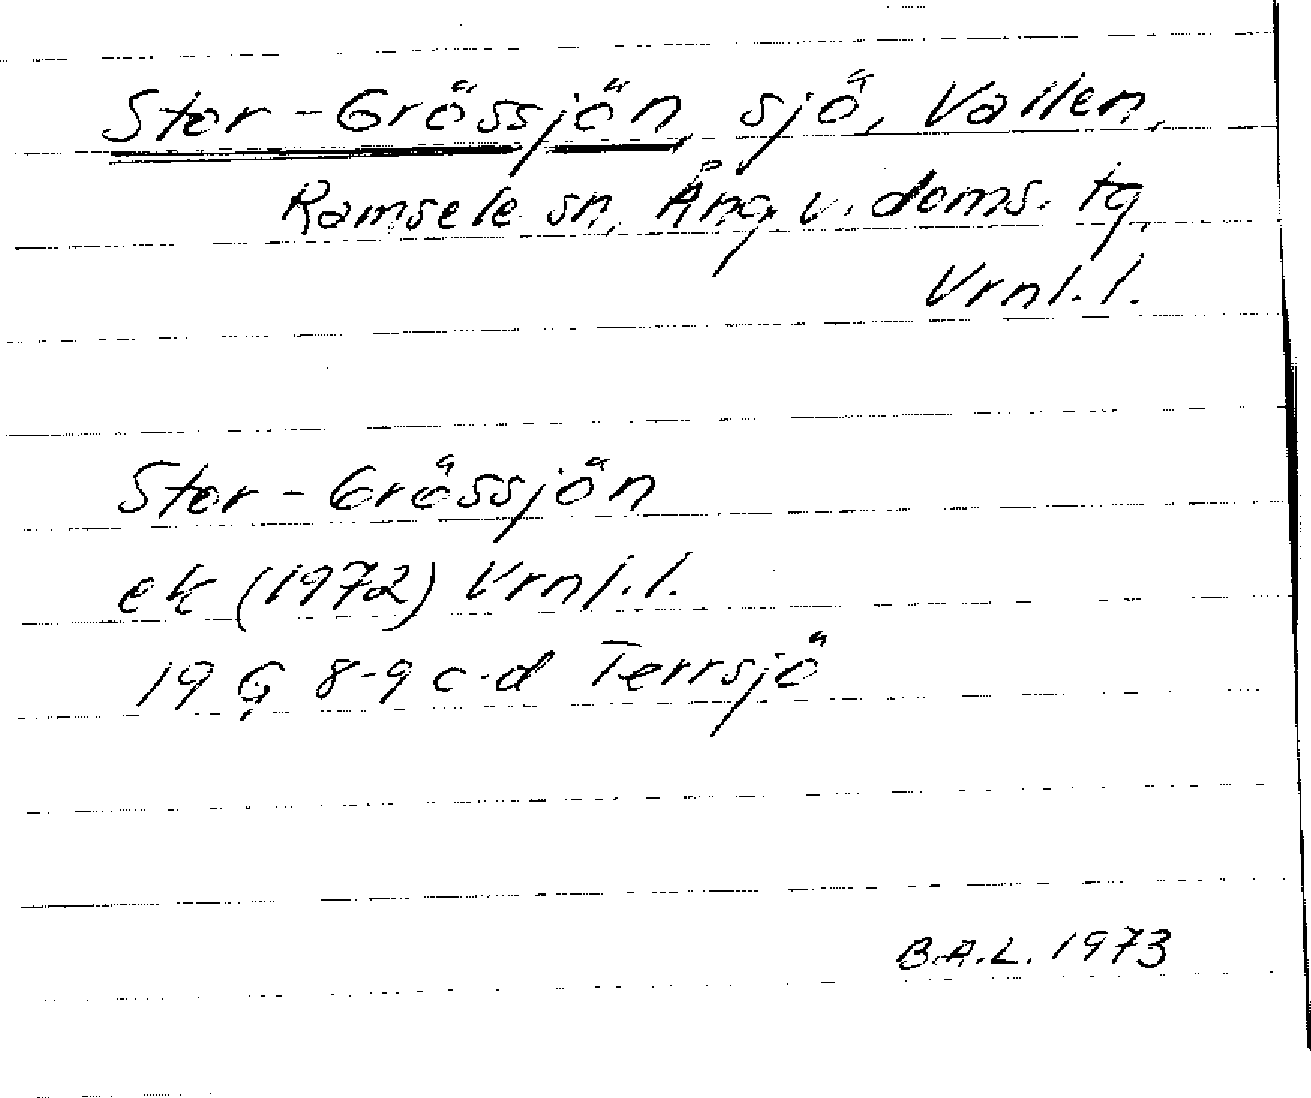 Stor-Grössjön, sjö, Vallen,
Ramsele sn, Ång. v. doms. tg,
Vrnl. l.
Stor-Grössjön
ek (1972) Vrnl. l.
19 G 8-9 c-d Terrsjö
B.A.L. 1973